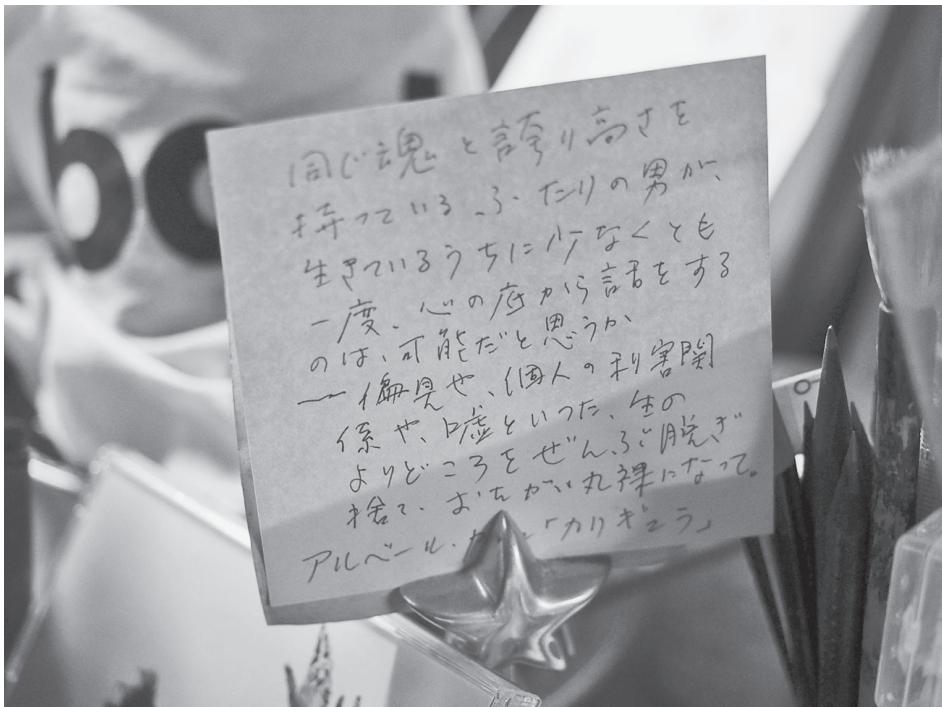 同じ魂と誇り高さを
持っている ふたりの男が、
生きているうちに少なくとも
一度、心の底から話をする
のは、可能だと思うか
― 偏見や、個人の利害関
係や、嘘といった、生の
よりどころをぜんぶ脱ぎ
捨て、おたがい丸裸になって。
アルベール・ 「カリギュラ」